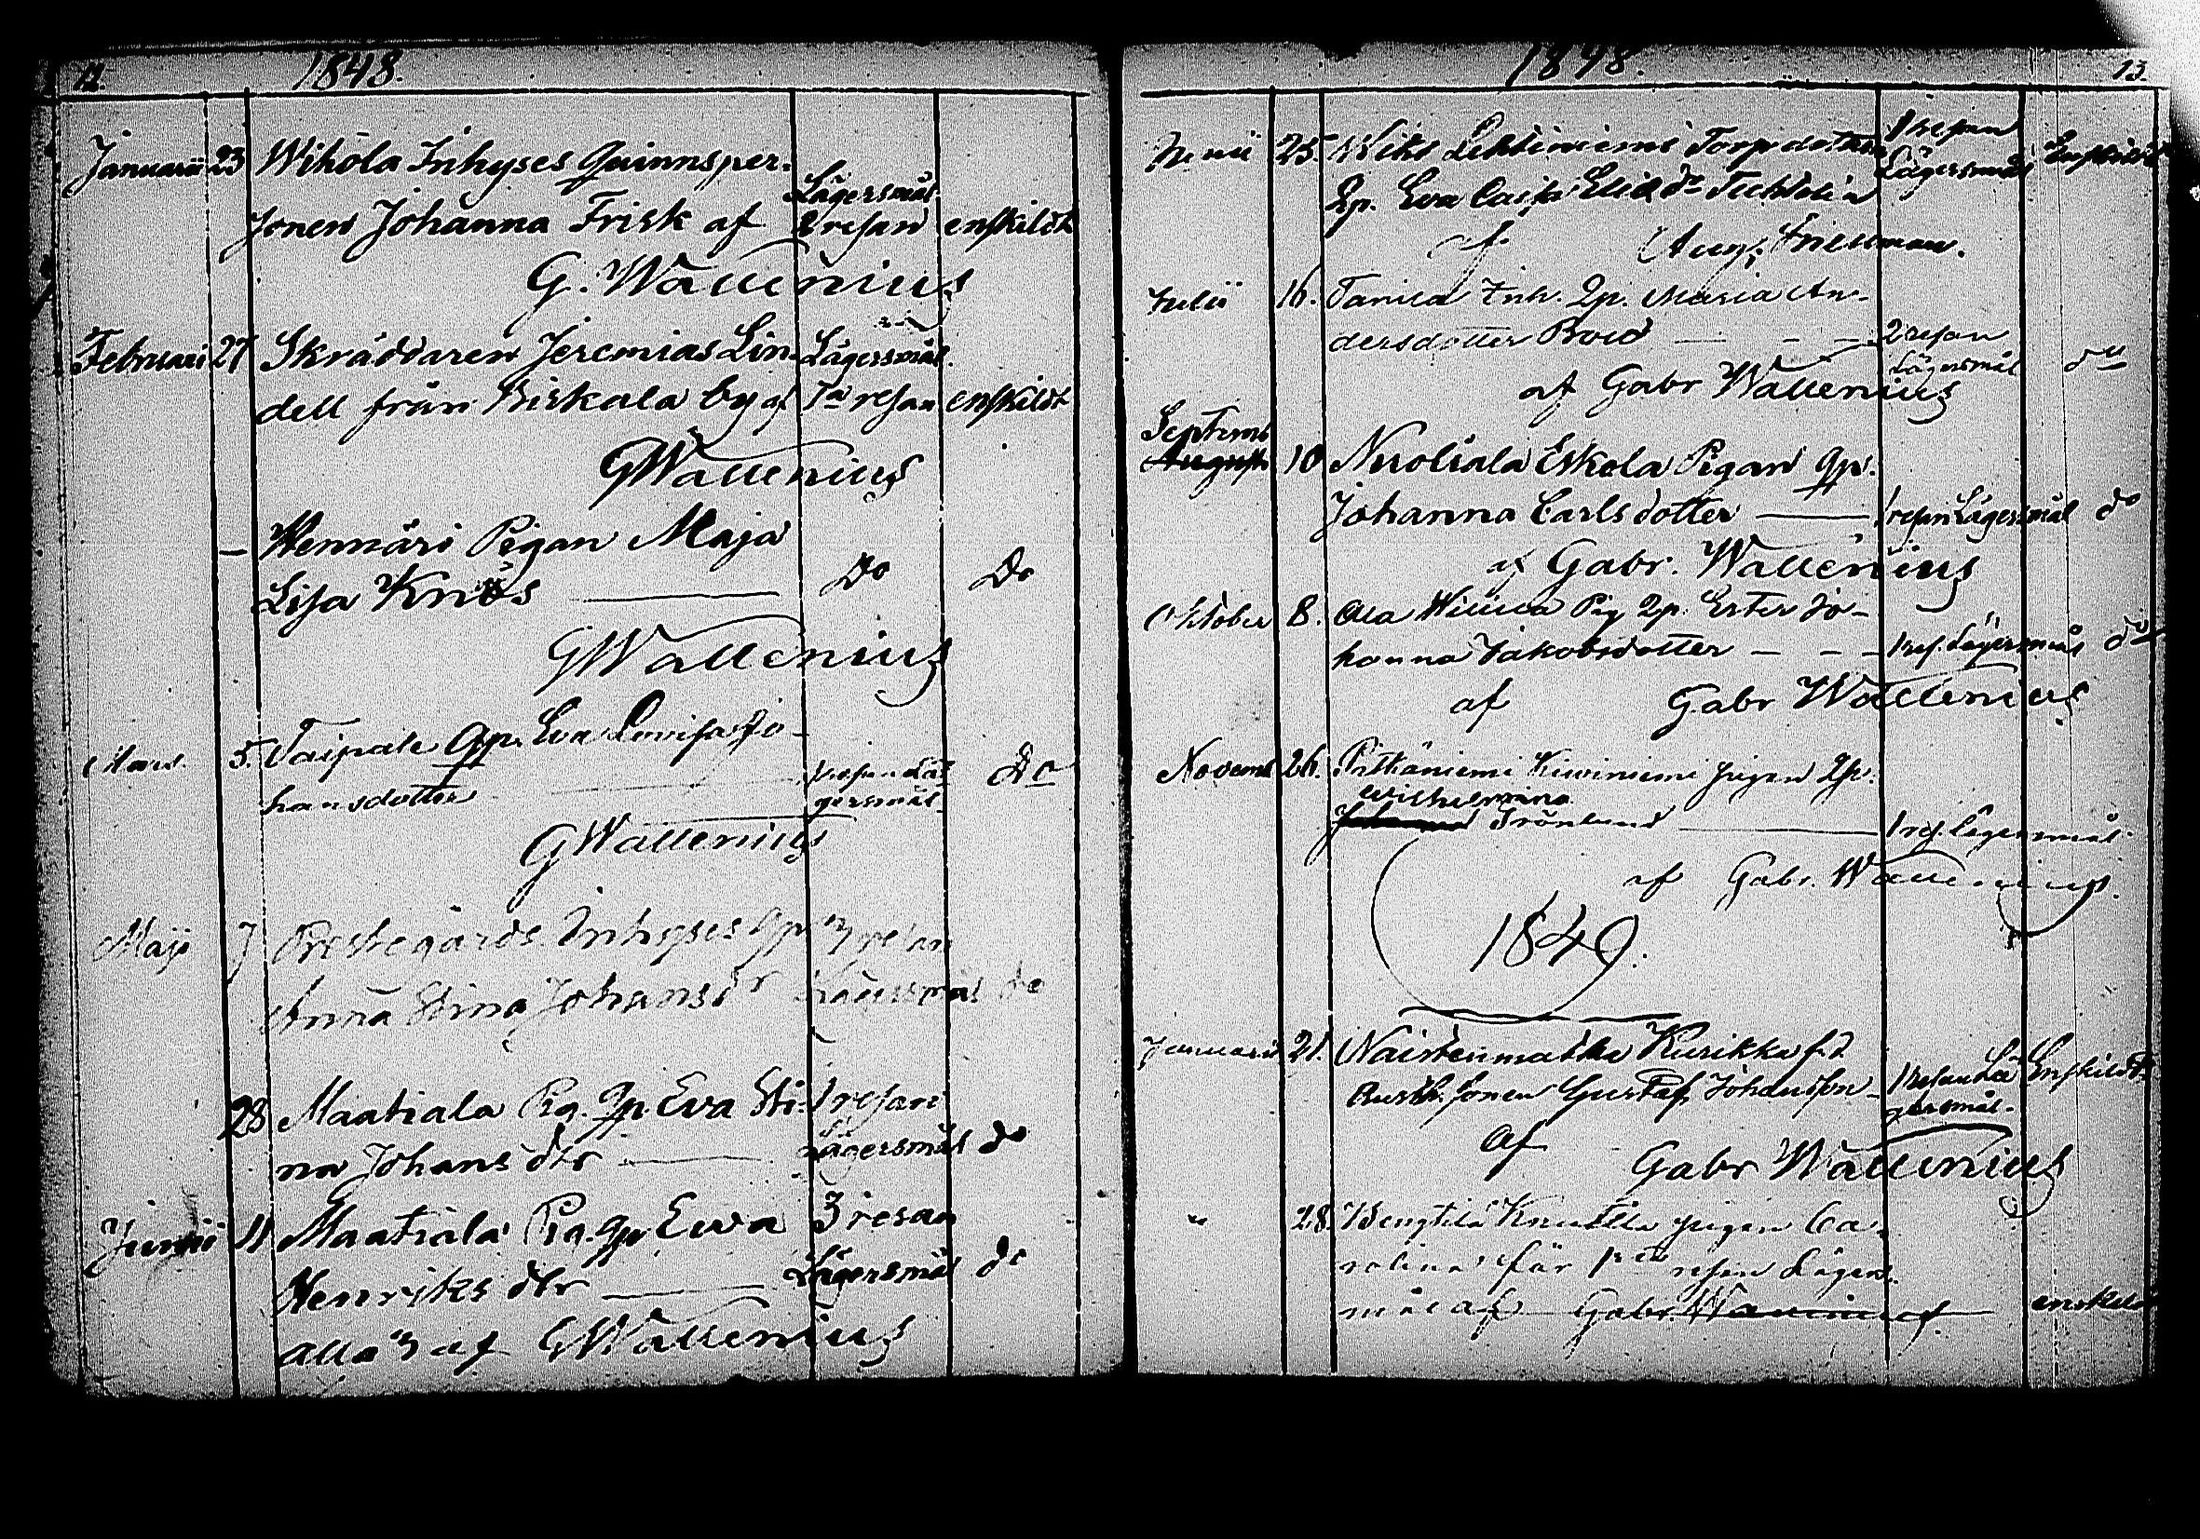 12.
1848.
Januarii 23 Wihola Inhyses Quinnsper-
sonen Johanna Frisk af Lägersmål 2 resan enskildt
G. Wallenius
Februari 27 Skräddaren Jeremias Lin- Lägersmål
dell från Kiskala by af 1a resan enskildt
GWallenius
— Hennäri Pigan Maja
Lisa Knös Do Do
GWallenius
Mars 5. Taipale Qp. Eva Lovisa Jo-
hansdotter 1 resan Lä-
gersmål Do
GWallenius
Maji 7 Prestegårds Inhyses Qp 3 resan
Anna Stina Johansdr Lägersmål do
28 Maatiala Pig. Qp. Eva Sti- 1 resan
na Johans dtr Lägersmål do
Junii 11 Maatiala Pig. Qp Ewa 3 resan
Henriks dtr Lägersmål do
alla 3 af GWallenius
1848.
13.
25. Torp dottren 1 resan
Qp. Eva Lägersmål Enskildt
af Aug.
Julii 16. Inh. Qp. Maria An-
dersdotter 2 resan
Lägersmål do
af Gabr Wallenius
Septemb
August 10 Nuoliala Eskola Pigan Qp.
Johanna Carlsdotter 1 resan Lägersmål do
af Gabr. Wallenius
Oktober 8. Pig Qp. Ester Jo-
hanna Jakobsdotter 1 res. Lägersmål do
af Gabr Wallenius
Novemb 26. Pitkäniemi pigan Qp.
Wilhelmina
1 res. Lägersmål
af Gabr. Wallenius.
1849.
Januarii 21. Naistenmatka Kurikka
sonen Gustaf Johansson 1 resan Lä- Enskildt
gersmål.
Af Gabr Wallenius
" 28. Knuttila pigan Ca-
rolina för 1sta resan Lägers-
mål af Gabr. Wallenius enskildt